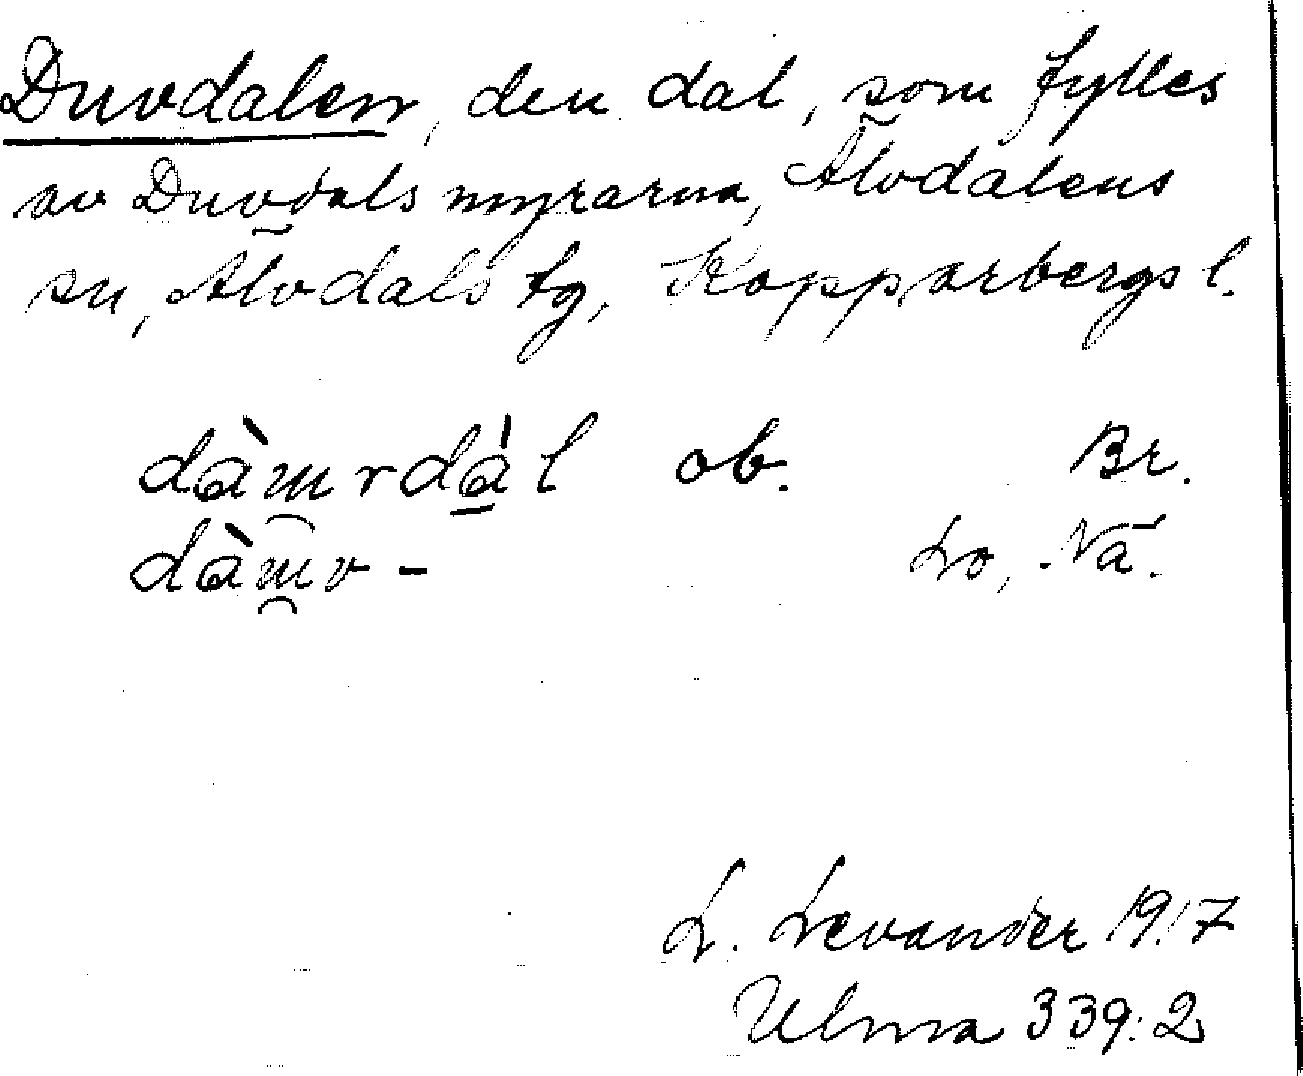 Duvdalen, den dal, som fylles
av Duvdalsmyrarna, Älvdalens
sn, Älvdals tg, Kopparbergs l.
dàɯrdál ob. Br.
dàɯv - Lo, Nä.
L. Levander 1917
Ulma 339:2